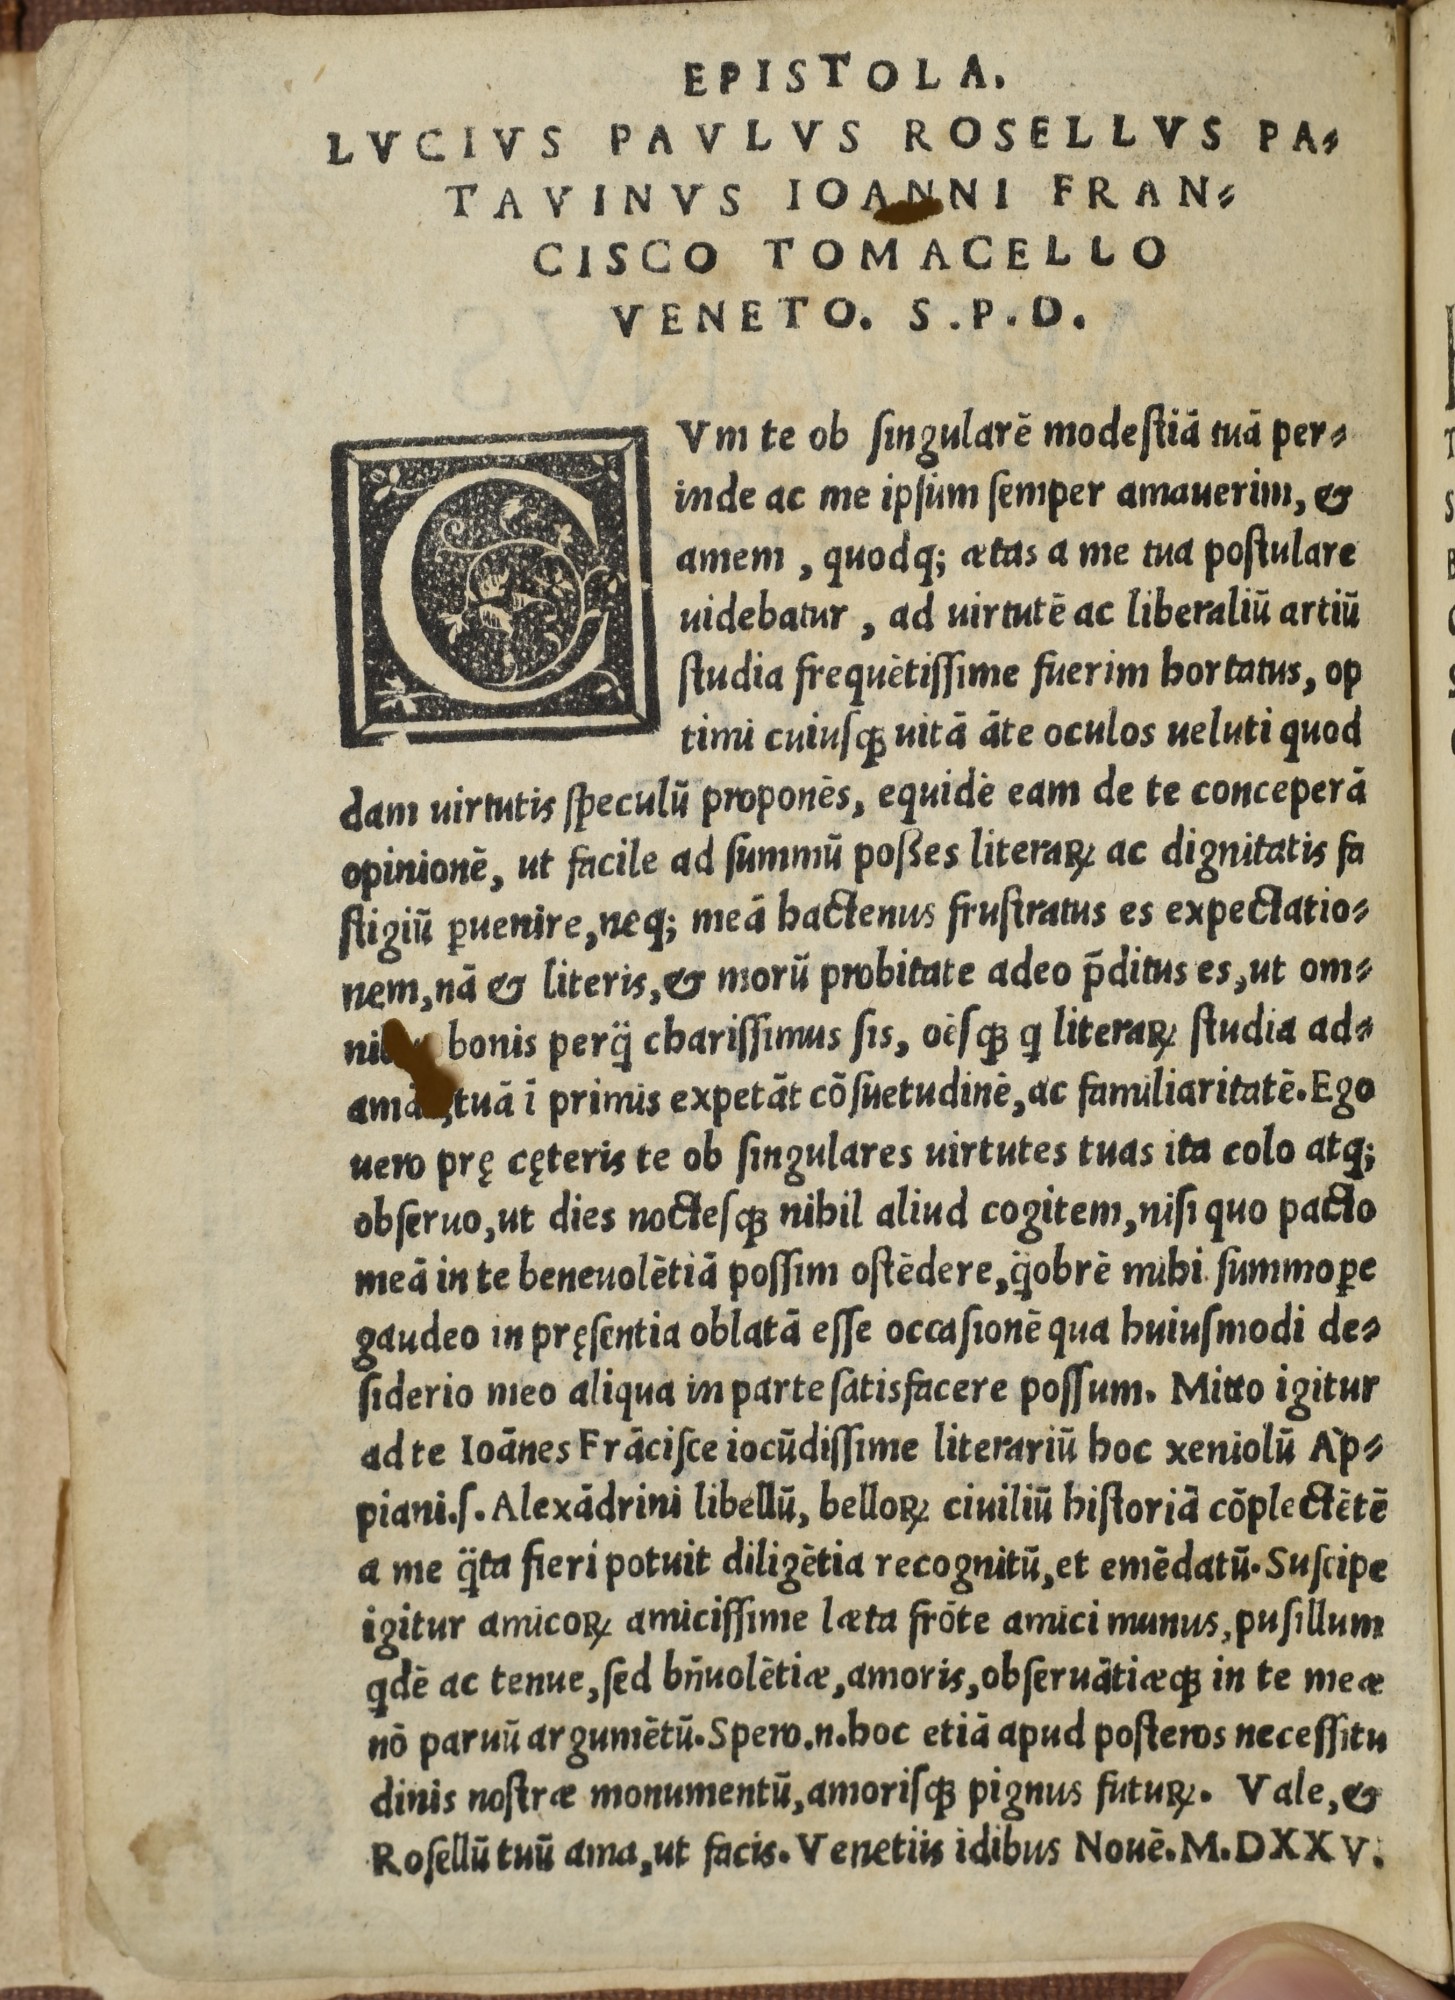 EPISTOLA.
LVCIVS PAVLVS ROSELLVS PA-
TAVINVS IOANNI FRAN-
CISCO TOMACELLO
VENETO. S.P.D.
CVm te ob ſingularē modeſtiā tuā per-
inde ac me ipſum ſemper amauerim, &
amem, quodq; ætas a me tua poſtulare
uidebatur, ad uirtutē ac liberaliū artiū
ſtudia frequētiſſime fuerim hortatus, op
timi cuiuſqꝫ uitā āte oculos ueluti quod
dam uirtutis ſpeculū proponēs, equidē eam de te conceperā
opinionē, ut facile ad ſummū poſſes literaꝝ ac dignitatis fa
ſtigiū ꝑuenire, neq; meā hactenus fruſtratus es expectatio-
nem, nā & literis, & morū probitate adeo p̄ditus es, ut om-
bonis perq̈ chariſſimus ſis, oēſqꝫ q literaꝝ ſtudia ad-
tuā ī primis expetāt cōſuetudinē, ac familiaritatē. Ego
uero prę cęteris te ob ſingulares uirtutes tuas ita colo atq;
obſeruo, ut dies nocteſqꝫ nihil aliud cogitem, niſi quo pacto
meā in te beneuolētiā poſſim oſtēdere, q̈obrē mihi ſummoꝑe
gaudeo in pręſentia oblatā eſſe occaſionē qua huiuſmodi de-
ſiderio meo aliqua in parte ſatisfacere poſſum. Mitto igitur
ad te Ioānes Frāciſce iocūdiſſime literariū hoc xeniolū Ap-
piani.ſ. Alexādrini libellū, belloꝝ ciuiliū hiſtoriā cōplectētē
a me q̈ta fieri potuit diligētia recognitū, et emēdatū. Suſcipe
igitur amicoꝝ amiciſſime læta frōte amici munus, puſillum
qdē ac tenue, ſed bn̄uolētiæ, amoris, obſeruātiæqꝫ in te meæ
nō paruū argumētū. Spero.n.hoc etiā apud poſteros neceſſitu
dinis noſtræ monumentū, amoriſqꝫ pignus futuꝝ. Vale, &
Roſellū tuū ama, ut facis. Venetiis idibus Nouē. M.DXXV.